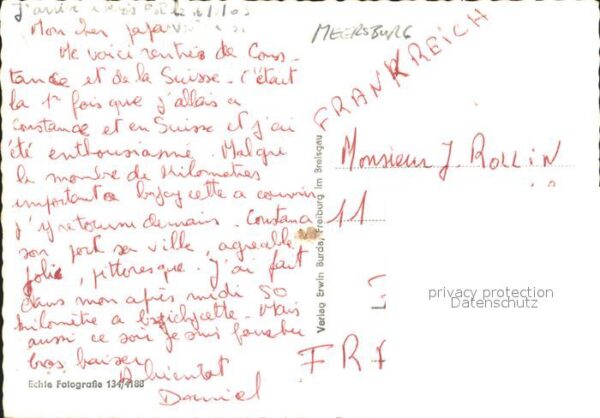 Mon cher papa
Me voici rentré de Cons-
tance et de la Suisse. C'était
la 1e fois que j'allais a
Constance et en Suisse et j'ai
été enthousiasmé. Malgré
le nombre de kilometres
important a bicyclette a couvrir
j'y retourne demain. Constance
son port sa ville, agreable
jolie, pittoresque. J'ai fait
dans mon après midi 50
kilomètre a bicyclette. Mais
aussi ce soir je suis
bos baiser
A bientot
Daniel
Echte Fotografie 134/4188
MEERSBURG
FRANKREICH
Verlag Erwin Burda, Freiburg im Breisgau
Monsieur J. ROLLIN
11
FRA
privacy protection
Datenschutz